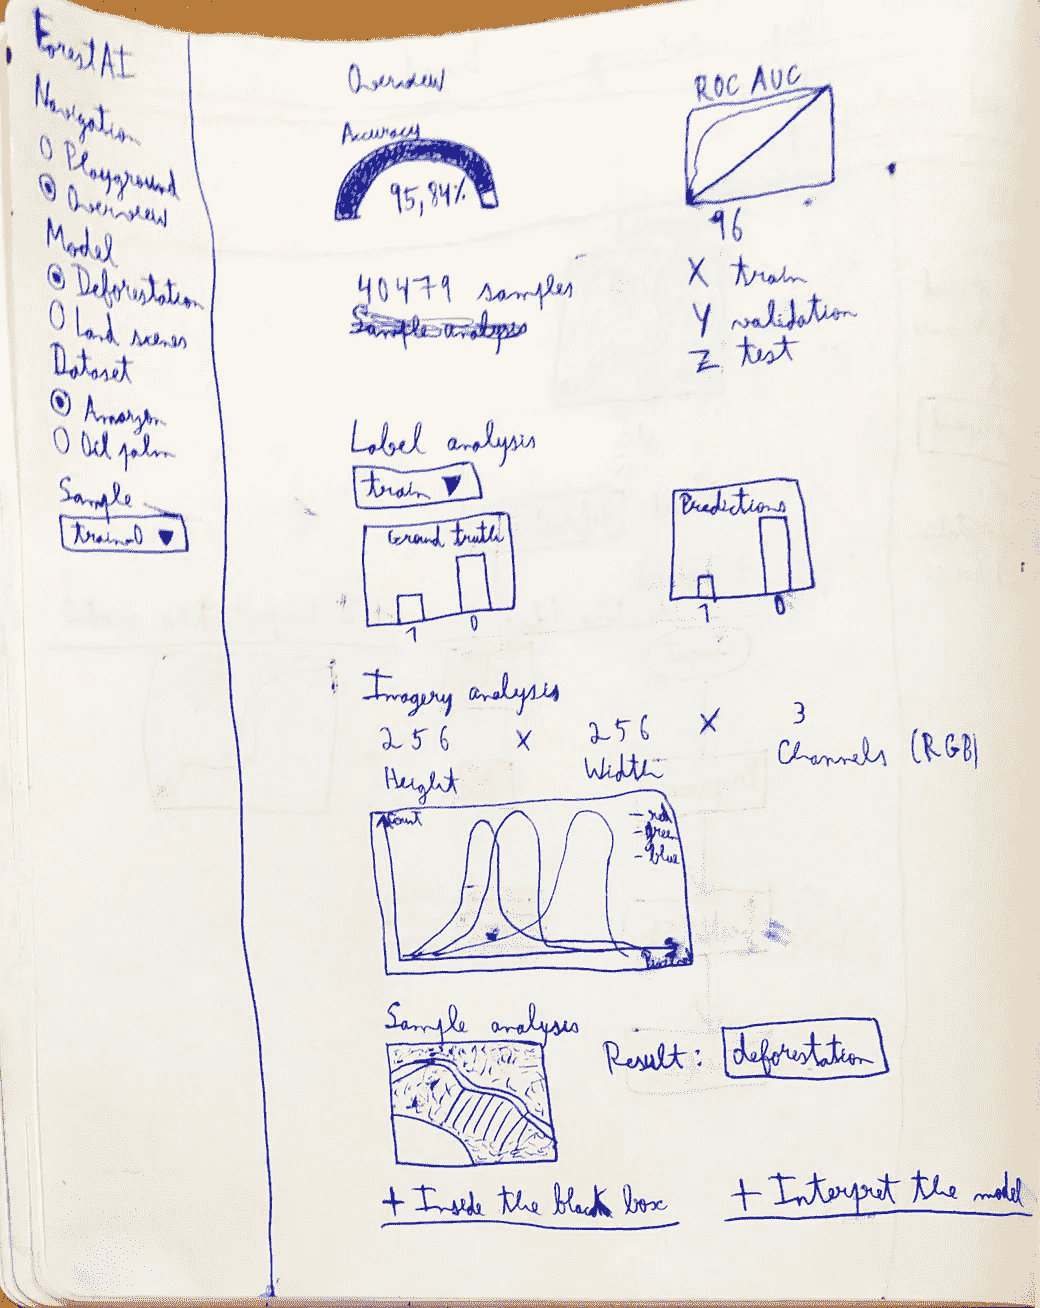 ForestAI
Navigation
Playground
Overview
Model
Deforestation
Land scenes
Dataset
Amazon
Oil palm
Sample
train0
Overview
Accuracy
95,84%
ROC AUC
96
40479 samples
Sample analysis
X train
Y validation
Z test
Label analysis
train
Ground truth
1 0
Predictions
1 0
Imagery analysis
256 X 256 X 3
Height Width Channels (RGB)
Count
- red
- green
- blue
Sample analysis
Result: deforestation
+ Inside the black box
+ Interpret the model